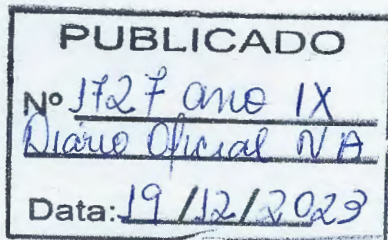 PUBLICADO
Nº 1727 ano IX
Diário Oficial NA
Data: 19/12/2023